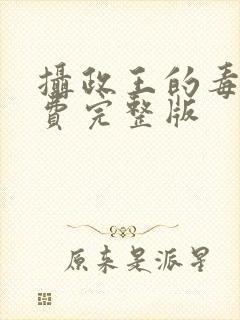 攝政王的毒
費完整版
原来是派星